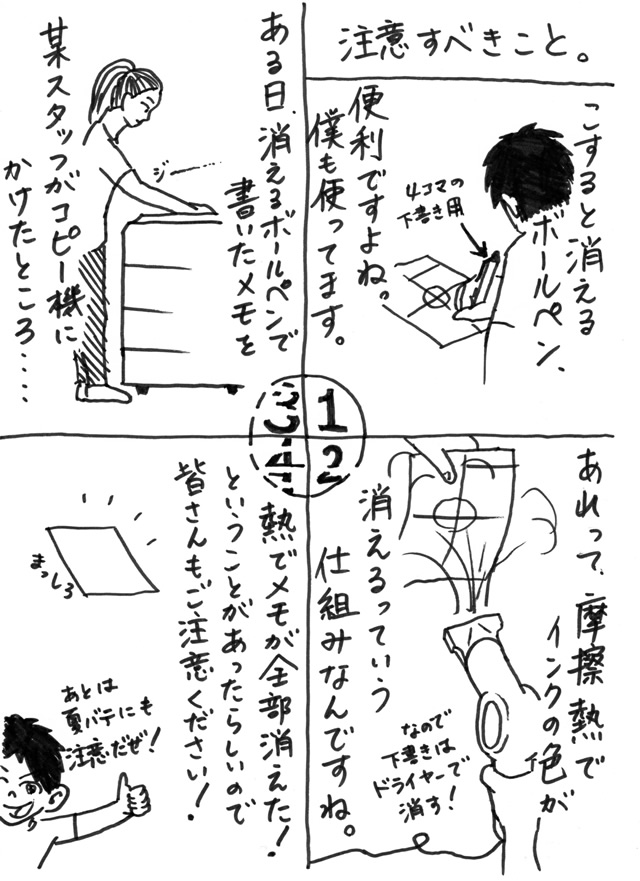 注意すべきこと。
こすると消える
ボールペン、
4コマの
下書き用
便利ですよね。
僕も使ってます。
1
2
3
4
あれって、摩擦熱で
インクの色が
消えるっていう
仕組みなんですね。
なので
下書きは
ドライヤーで
消す!
ある日、消えるボールペンで
書いたメモを
ジー
某スタッフがコピー機に
かけたところ・・・・・
熱でメモが全部消えた!
ということがあったらしいので
皆さんもご注意ください!
まっしろ
あとは
夏バテにも
注意だぜ!